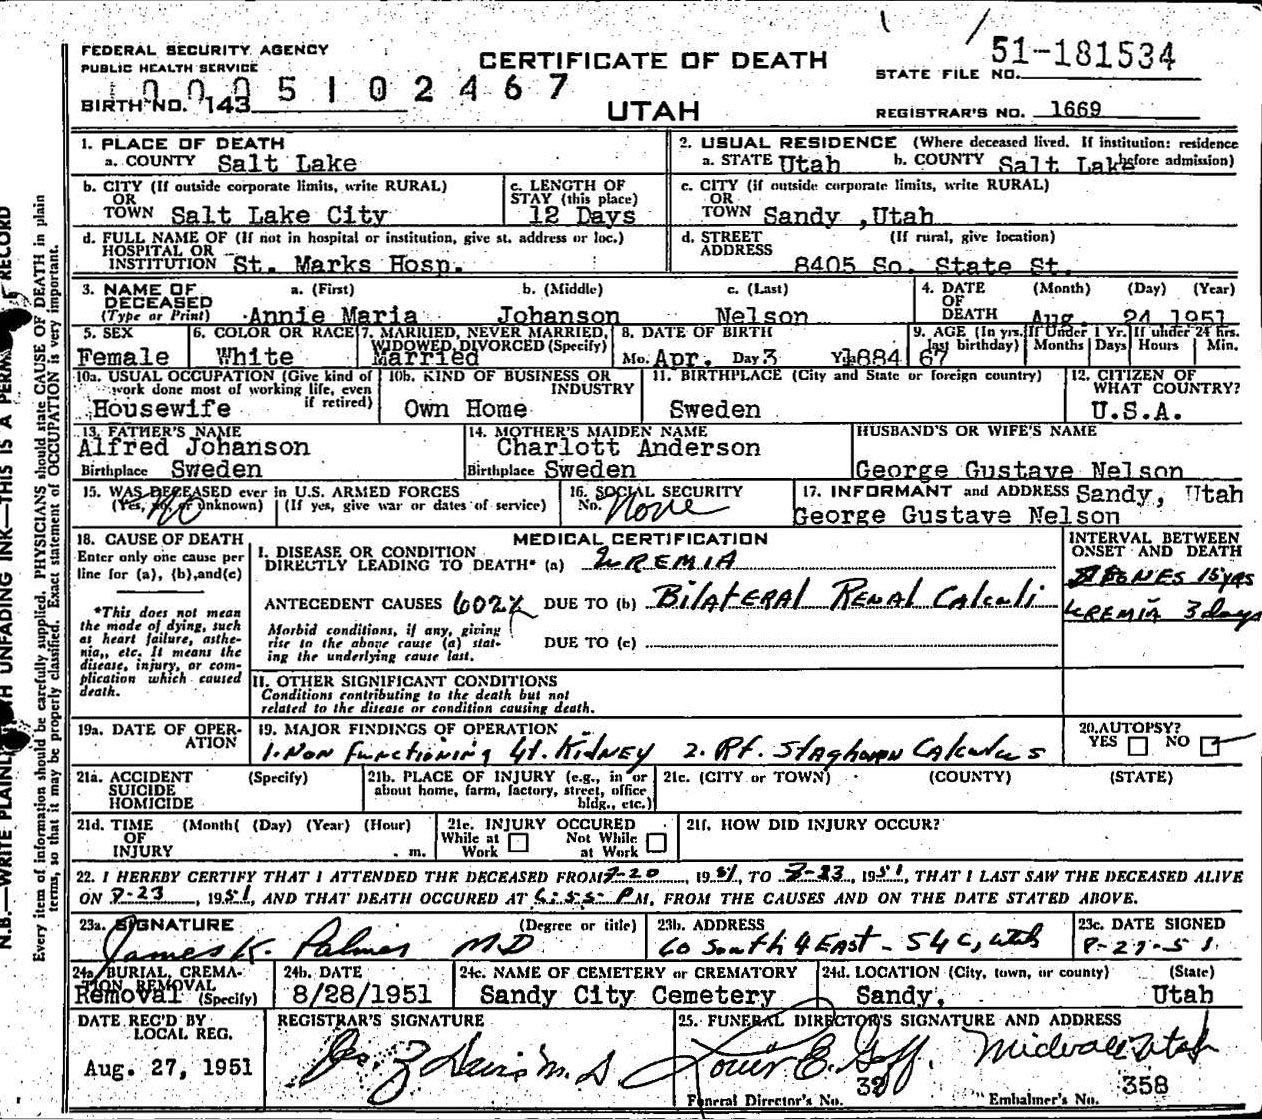 51-181534
FEDERAL SECURITY AGENCY
PUBLIC HEALTH SERVICE
CERTIFICATE OF DEATH
STATE FILE NO.
0005102467
BIRTH NO. 143
UTAH
REGISTRAR'S NO. 1669
1. PLACE OF DEATH
a. COUNTY Salt Lake
2. USUAL RESIDENCE (Where deceased lived. If institution: residence before admission)
a. STATE Utah b. COUNTY Salt Lake
b. CITY (If outside corporate limits, write RURAL)
OR
TOWN Salt Lake City
c. LENGTH OF
STAY (this place)
12 Days
c. CITY (if outside corporate limits, write RURAL)
OR
TOWN Sandy ,Utah
d. FULL NAME OF (If not in hospital or institution, give st. address or loc.)
HOSPITAL OR
INSTITUTION St. Marks Hosp.
d. STREET (If rural, give location)
ADDRESS
8405 So. State St.
3. NAME OF a. (First) b. (Middle) c. (Last)
DECEASED
(Type or Print) Annie Maria Johanson Nelson
4. DATE (Month) (Day) (Year)
OF
DEATH Aug. 24 1951
5. SEX
Female
6. COLOR OR RACE
White
7. MARRIED, NEVER MARRIED,
WIDOWED, DIVORCED (Specify)
Married
8. DATE OF BIRTH
Mo. Apr. Day 3 Yr. 1884
9. AGE (In yrs. last birthday)
67
If Under 1 Yr.
Months Days
If under 24 hrs.
Hours Min.
10a. USUAL OCCUPATION (Give kind of
work done most of working life, even
if retired)
Housewife
10b. KIND OF BUSINESS OR
INDUSTRY
Own Home
11. BIRTHPLACE (City and State or foreign country)
Sweden
12. CITIZEN OF
WHAT COUNTRY?
U.S.A.
13. FATHER'S NAME
Alfred Johanson
Birthplace Sweden
14. MOTHER'S MAIDEN NAME
Charlott Anderson
Birthplace Sweden
HUSBAND'S OR WIFE'S NAME
George Gustave Nelson
15. WAS DECEASED ever in U.S. ARMED FORCES
(Yes, no, or unknown) (If yes, give war or dates of service)
No
16. SOCIAL SECURITY
No. None
17. INFORMANT and ADDRESS Sandy, Utah
George Gustave Nelson
18. CAUSE OF DEATH
Enter only one cause per
line for (a), (b), and (c)
*This does not mean
the mode of dying, such
as heart failure, asthe-
nia, etc. It means the
disease, injury, or com-
plication which caused
death.
MEDICAL CERTIFICATION
I. DISEASE OR CONDITION
DIRECTLY LEADING TO DEATH* (a) UREMIA
ANTECEDENT CAUSES 602X DUE TO (b) Bilateral Renal Calculi
Morbid conditions, if any, giving
rise to the above cause (a) stat-
ing the underlying cause last.
DUE TO (c)
INTERVAL BETWEEN
ONSET AND DEATH
STONES 15 yrs
UREMIA 3 days
II. OTHER SIGNIFICANT CONDITIONS
Conditions contributing to the death but not
related to the disease or condition causing death.
19a. DATE OF OPER-
ATION
19. MAJOR FINDINGS OF OPERATION
1. Non Functioning Lt. Kidney 2. Rt. Staghorn Calculus
20. AUTOPSY?
YES NO
21a. ACCIDENT (Specify)
SUICIDE
HOMICIDE
21b. PLACE OF INJURY (e.g., in or
about home, farm, factory, street, office
bldg., etc.)
21c. (CITY or TOWN) (COUNTY) (STATE)
21d. TIME (Month( (Day) (Year) (Hour)
OF
INJURY . m.
21e. INJURY OCCURED
While at Work Not While at Work
21f. HOW DID INJURY OCCUR?
22. I HEREBY CERTIFY THAT I ATTENDED THE DECEASED FROM 7-20, 1951, TO 8-23, 1951, THAT I LAST SAW THE DECEASED ALIVE
ON 8-23, 1951, AND THAT DEATH OCCURED AT 6:55 P M, FROM THE CAUSES AND ON THE DATE STATED ABOVE.
23a. SIGNATURE (Degree or title)
James K. Palmer MD
23b. ADDRESS
60 South 4 East - SLC, Utah
23c. DATE SIGNED
8-27-51
24a. BURIAL, CREMA-
TION REMOVAL
Removal (Specify)
24b. DATE
8/28/1951
24c. NAME OF CEMETERY or CREMATORY
Sandy City Cemetery
24d. LOCATION (City, town, or county) (State)
Sandy, Utah
DATE REC'D BY
LOCAL REG.
Aug. 27, 1951
REGISTRAR'S SIGNATURE
25. FUNERAL DIRECTOR'S SIGNATURE AND ADDRESS
Louis E. Goff. Midvale Utah
32 358
Funeral Director's No. Embalmer's No.
N.B.—WRITE PLAINLY WITH UNFADING INK—THIS IS A PERMANENT RECORD
Every item of information should be carefully supplied. PHYSICIANS should state CAUSE OF DEATH in plain
terms, so that it may be properly classified. Exact statement of OCCUPATION is very important.